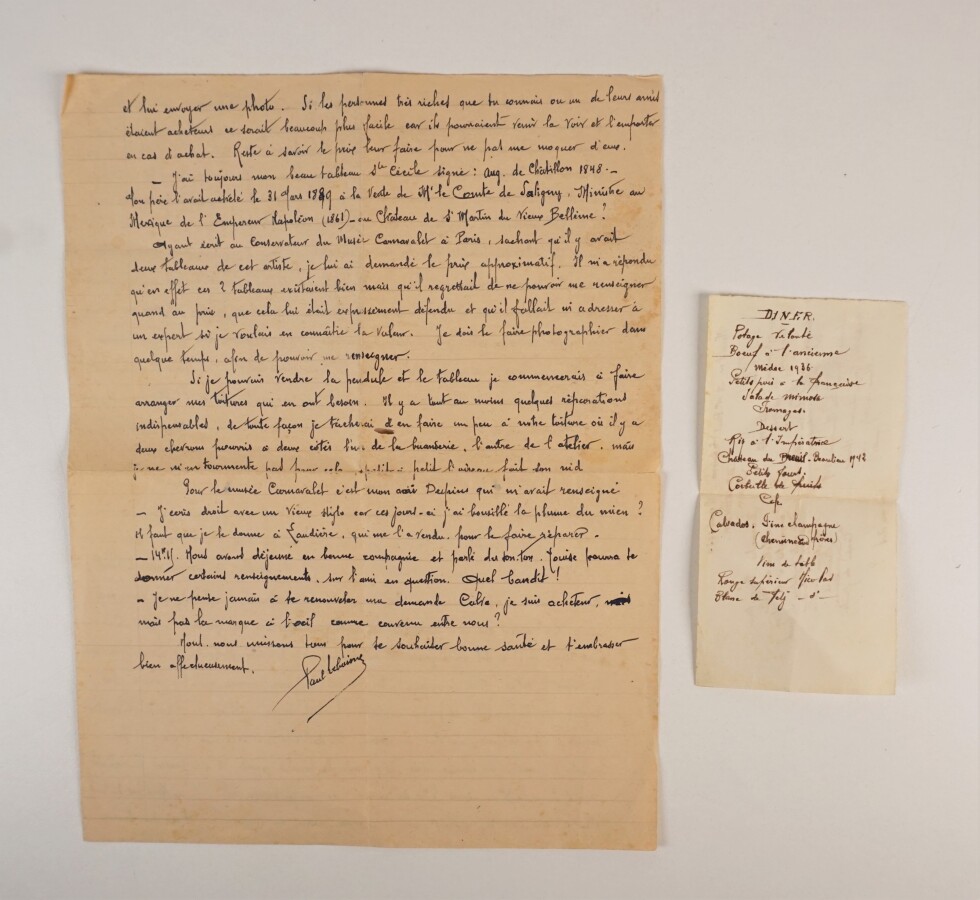 et lui envoyer une photo. Si les personnes très riches que tu connais ou un de leurs amis
étaient acheteurs ce serait beaucoup plus facile car ils pourraient venir la voir et l'emporter
en cas d'achat. Reste à savoir le prix leur faire pour ne pas me moquer d'eux.
— J'ai toujours mon beau tableau Ste Cécile signé : Aug. de Châtillon 1848. —
Mon père l'avait acheté le 31 Mars 1889 à la Vente de Mr le Comte de Saligny, Ministre au
Mexique de l'Empereur Napoléon (1861) — au Château de St Martin du Vieux Bellême ?
Ayant écrit au Conservateur du Musée Carnavalet à Paris, sachant qu'il y avait
deux tableaux de cet artiste, je lui ai demandé le prix approximatif. Il m'a répondu
qu'en effet ces 2 tableaux existaient bien mais qu'il regrettait de ne pouvoir me renseigner
quand au prix, que cela lui était expressément défendu et qu'il fallait m'adresser à
un expert si je voulais en connaître la valeur. Je dois le faire photographier dans
quelque temps, afin de pouvoir me renseigner.
Si je pouvais vendre la pendule et le tableau je commencerais à faire
arranger mes toitures qui en ont besoin. Il y a tout au moins quelques réparations
indispensables, de toute façon je tacherai d'en faire un peu à notre toiture où il y a
deux chevrons pourris à deux côtés l'un de la buanderie, l'autre de l'atelier, mais
je ne m'en tourmente pas pour cela, petit à petit l'oiseau fait son nid
Pour le musée Carnavalet c'est mon ami Despins qui m'avait renseigné
— J'écris droit avec un vieux stylo car ces jours-ci j'ai bousillé la plume du mien ?
Il faut que je le donne à qui me l'a vendu, pour le faire réparer.
— Nous avons déjeuné en bonne compagnie et parlé du Louise pourra te
donner certains renseignements, sur l'ami en question. Quel bandit !
— Je ne pense jamais à te renouveler ma demande je suis acheteur,
mais pas la marque à l'oeil comme convenu entre nous ?
Nous nous unissons tous pour te souhaiter bonne santé et t'embrasser
bien affectueusement.
Paul
DINER.
Potage Velouté
Boeuf à l'ancienne
Médoc 1936
Petits pois à la française
Salade mimosa
Fromages.
Dessert
Riz à l'Impératrice
Château du 1942
Petits fours,
Corbeille de fruits
Café
Calvados. Fine champagne
Vins de table
Rouge supérieur Nicolas
Blanc de — d° —